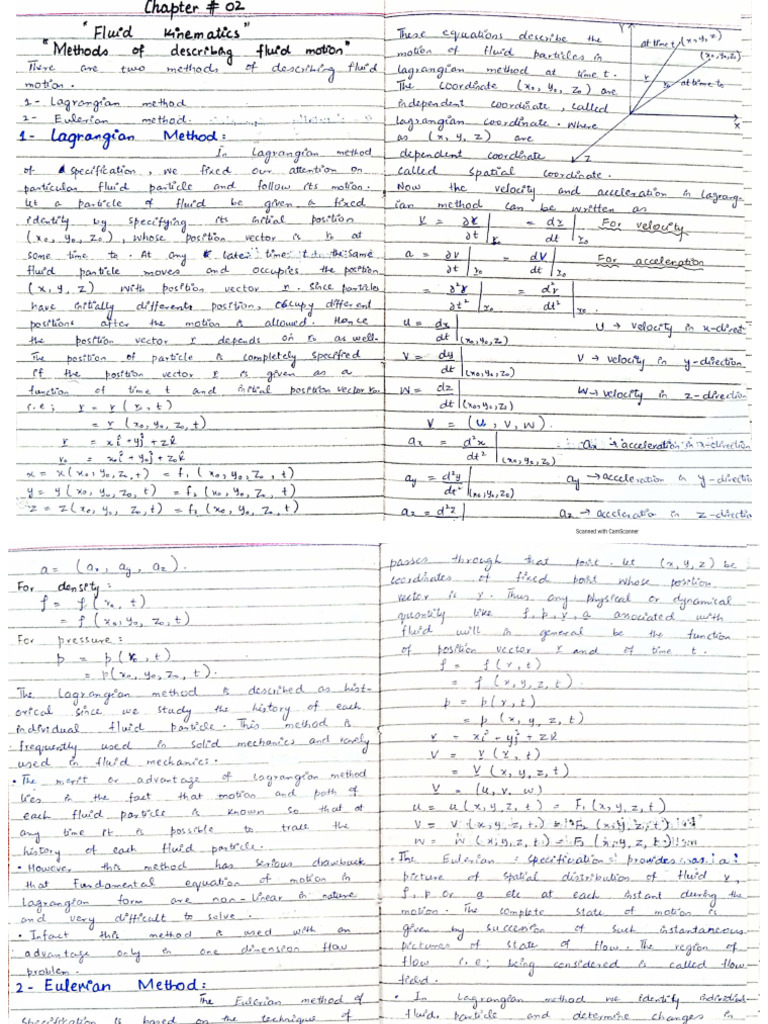 Chapter # 02
"Fluid Kinematics"
"Methods of describing fluid motion"
There are two methods of describing fluid
motion.
1- Lagrangian method
2- Eulerian method.
1- Lagrangian Method:
In Lagrangian method
of specification, we fixed our attention on
particular fluid particle and follow its motion.
Let a particle of fluid be given a fixed
identity by specifying its initial position
(x₀, y₀, z₀), whose position vector is r₀ at
some time t₀. At any late time t, the same
fluid particle moves and occupies the position
(x, y, z) with position vector r. Since particles
have initially different position, occupy different
positions after the motion is allowed. Hence
the position vector r depends on r₀ as well.
The position of particle is completely specified
if the position vector r is given as a
function of time t and initial position vector r₀.
i.e; r = r (r₀, t)
= r (x₀, y₀, z₀, t)
r = xi + yj + zk
r₀ = x₀i + y₀j + z₀k
x = x(x₀, y₀, z₀, t) = f₁ (x₀, y₀, z₀, t)
y = y(x₀, y₀, z₀, t) = f₂ (x₀, y₀, z₀, t)
z = z(x₀, y₀, z₀, t) = f₃ (x₀, y₀, z₀, t)
These equations describe the
motion of fluid particles in
lagrangian method at time t.
The coordinate (x₀, y₀, z₀) are
independent coordinate, called
lagrangian coordinate. Where
as (x, y, z) are
dependent coordinate
called spatial coordinate.
Y
at time t (x, y, z)
(x₀, y₀, z₀)
r
r₀
at time t₀
X
Z
Now the velocity and acceleration in Lagrang-
ian method can be written as
V = ∂r/∂t |r₀ = dr/dt |r₀ For velocity
a = ∂V/∂t |r₀ = dV/dt |r₀ For acceleration
= ∂²r/∂t² |r₀ = d²r/dt² |r₀.
u = dx/dt |(x₀, y₀, z₀) U → velocity in x-direct
V = dy/dt |(x₀, y₀, z₀) V → velocity in y-direction
W = dz/dt |(x₀, y₀, z₀) W → velocity in z-direction
V = (u, v, w).
aₓ = d²x/dt² |(x₀, y₀, z₀) aₓ → acceleration in x-direction
ay = d²y/dt² |(x₀, y₀, z₀) ay → acceleration in y-directio
az = d²z az → acceleration in z-directio
Scanned with CamScanner
a = (aₓ, ay, az).
For density:
ρ = ρ (r₀, t)
= ρ (x₀, y₀, z₀, t)
For pressure:
p = p (r₀, t)
= p(x₀, y₀, z₀, t).
The Lagrangian method is described as hist-
orical since we study the history of each
individual fluid particle. This method is
frequently used in solid mechanics and rarely
used in fluid mechanics.
• The merit or advantage of Lagrangian method
lies in the fact that motion and path of
each fluid particle is known so that at
any time it is possible to trace the
history of each fluid particle.
• However this method has serious drawback
that fundamental equation of motion in
Lagrangian form are non-linear in nature
and very difficult to solve.
• Infact this method is used with an
advantage only in one dimension flow
problem.
2- Eulerian Method:
The Eulerian method of
specification is based on the technique of
passes through that point. Let (x, y, z) be
coordinates of fixed point whose position
vector is r. Thus any physical or dynamical
quantity like ρ, p, v, a associated with
fluid will in general be the function
of position vector r and of time t.
ρ = ρ (r, t)
= ρ (x, y, z, t).
p = p(r, t)
= p (x, y, z, t)
r = xi + yj + zk
V = V (r, t)
= V (x, y, z, t)
V = (u, v, w)
u = u(x, y, z, t) = F₁ (x, y, z, t)
V = V (x, y, z, t) = F₂ (x, y, z, t)
W = W (x, y, z, t) = F₃ (x, y, z, t)
• The Eulerian specification provides as a
picture of spatial distribution of fluid v,
ρ, p or a etc at each instant during the
motion. The complete state of motion is
given by succession of such instantaneous
pictures of state of flow. The region of
flow i.e; being considered is called flow
field.
• In Lagrangian method we identify individual
fluid particle and determine changes in